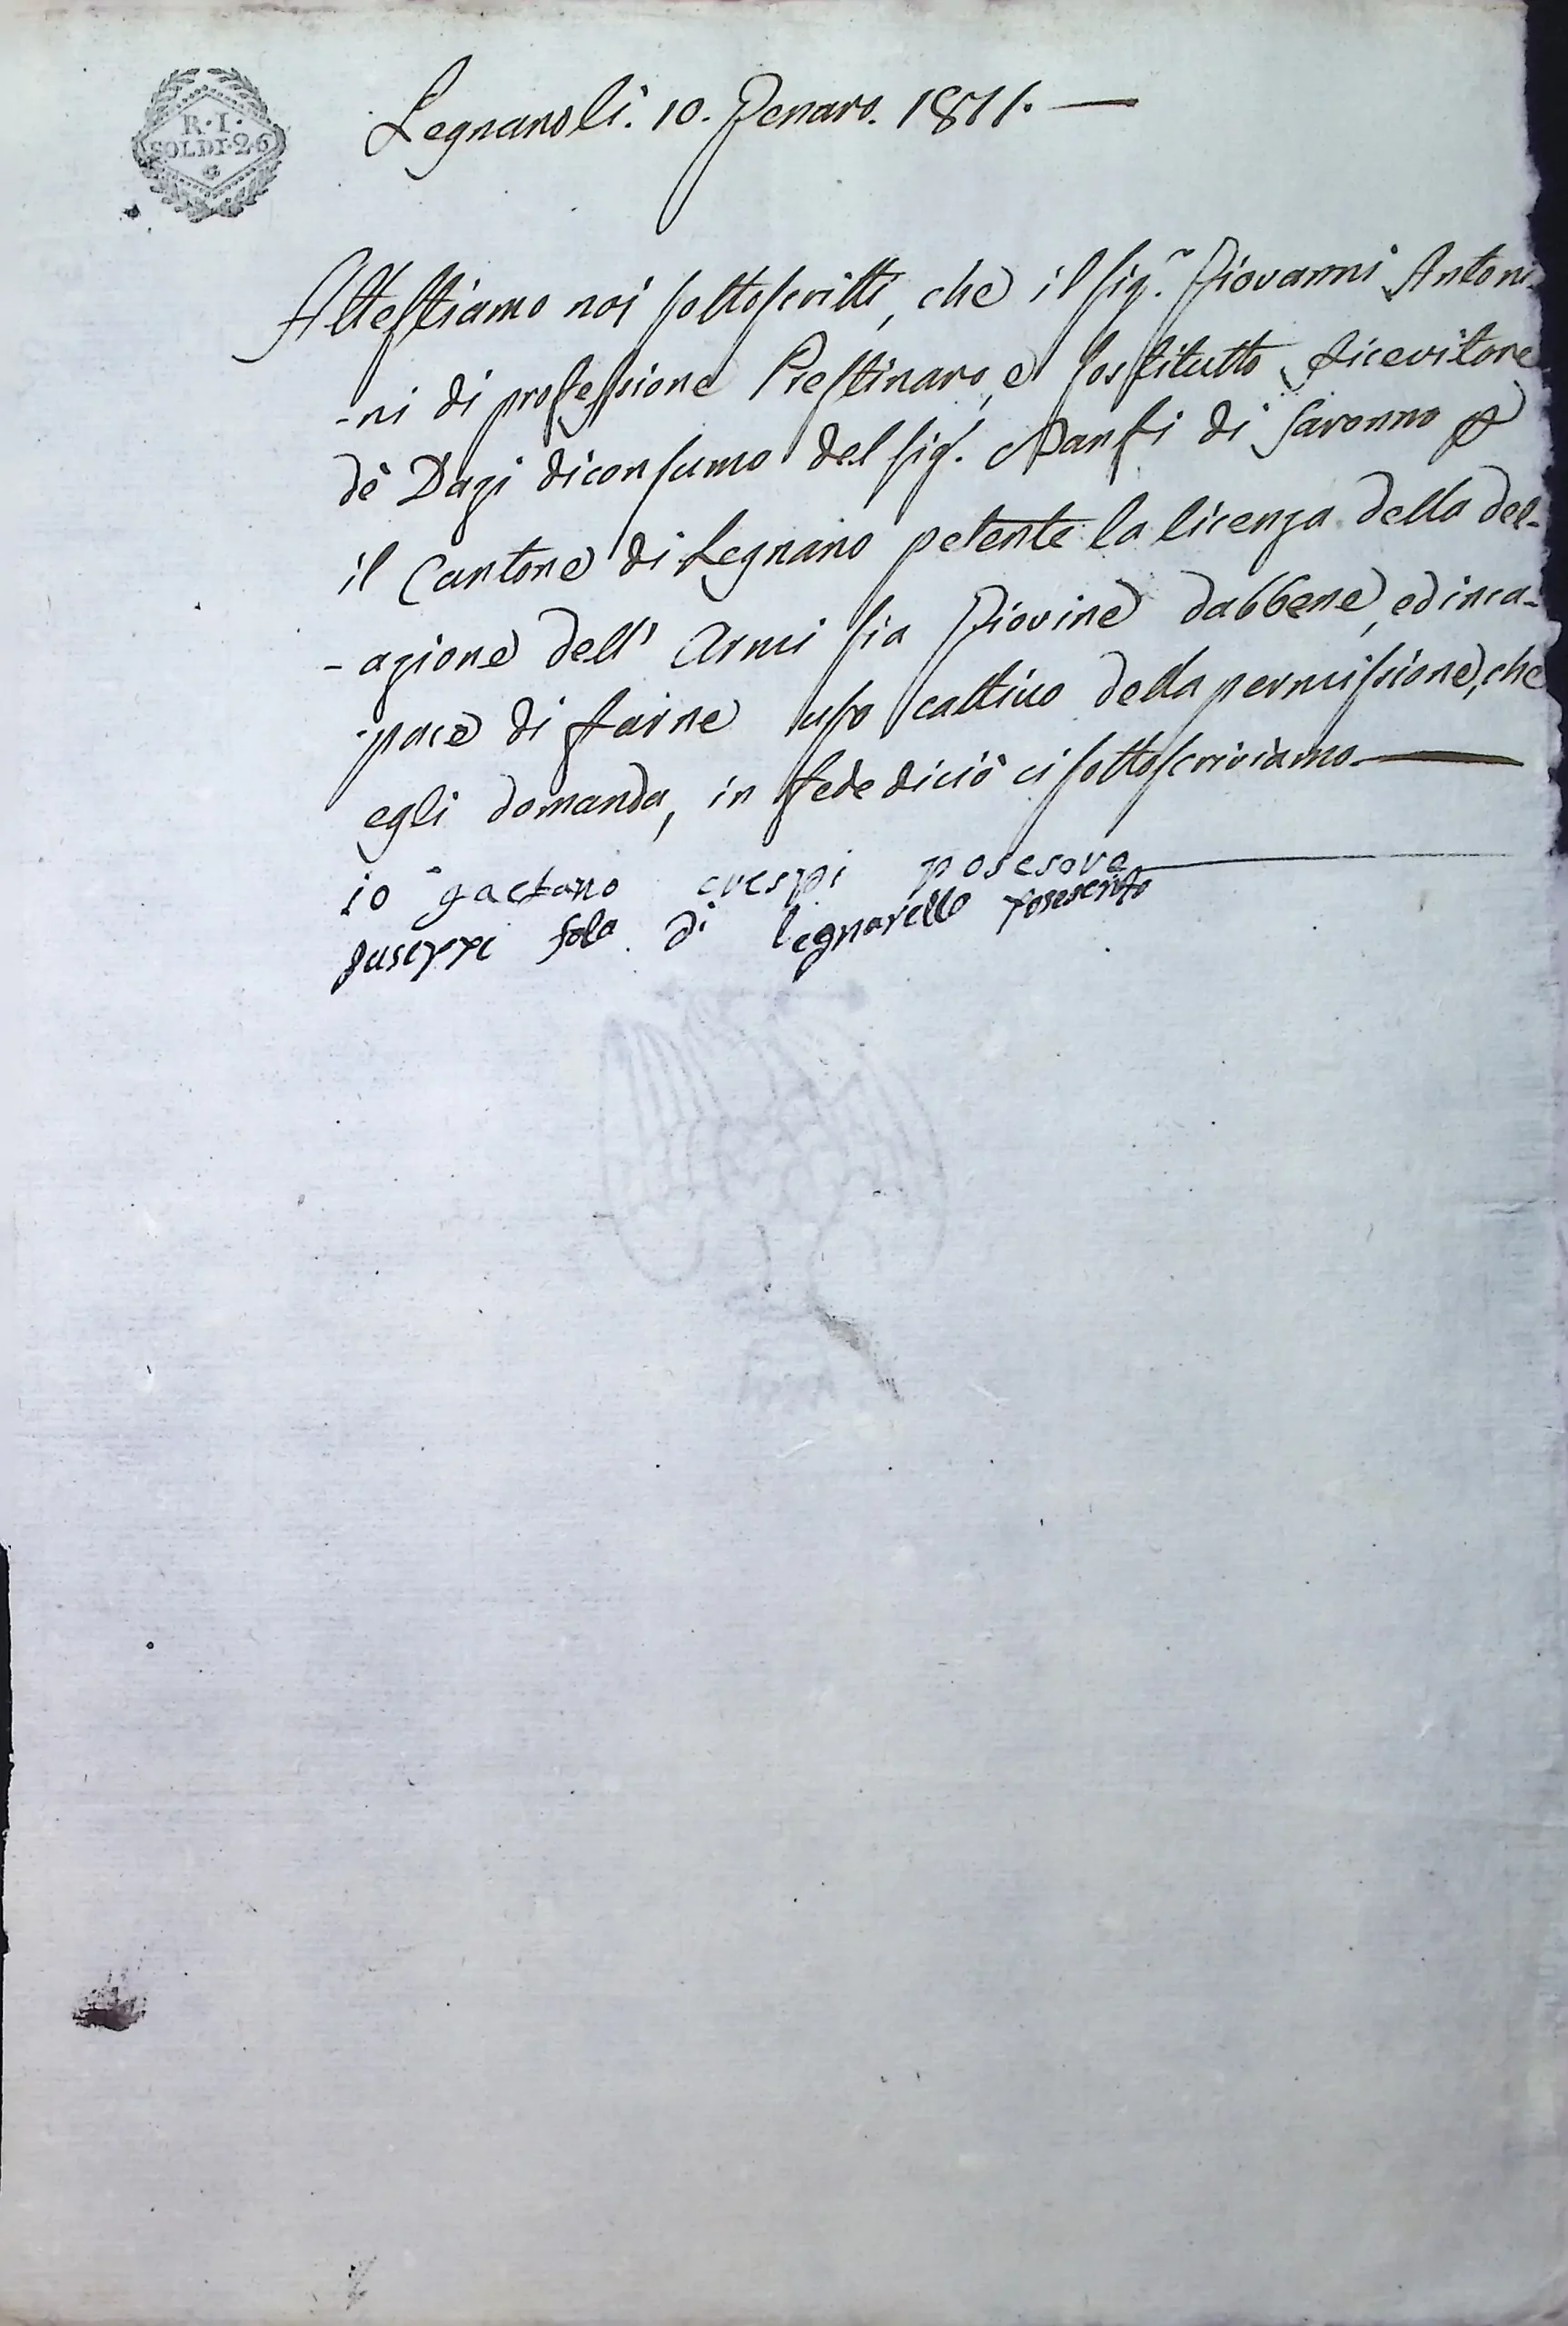 R·I·
SOLDI·26
Legnano li. 10. Genaro. 1811.
Attestiamo noi sottoscritti, che il sig.r Giovanni Antoni
-ni di professione Prestinaro, e sostitutto Ricevitore
dè Dazi di consumo del sig.r di Saronno
il Cantone di Legnano petente la licenza della del-
-azione dell' Armi sia Giovine dabbene, ed inca-
-pace di farne uso cattivo della permissione, che
egli domanda, in fede di ciò ci sottoscriviamo
io gaetano crespi posesore
Guseppe fola di legnarello